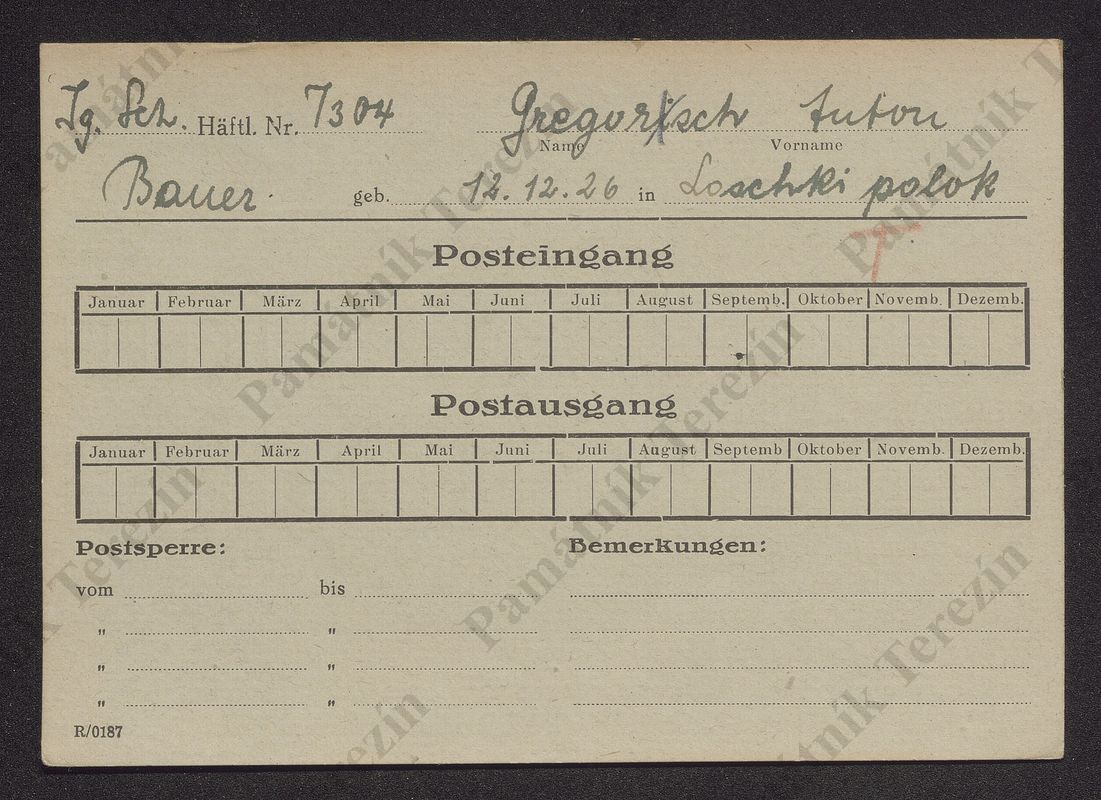 Jg. Sch. Häftl. Nr. 7304 Gregorisch Anton
Name Vorname
Bauer. geb. 12.12.26 in Loschki polok
T
Posteingang
Januar Februar März April Mai Juni Juli August Septemb. Oktober Novemb. Dezemb.
Postausgang
Januar Februar März April Mai Juni Juli August Septemb Oktober Novemb. Dezemb.
Postsperre: Bemerkungen:
vom bis
" "
" "
" "
R/0187
Památník Terezín